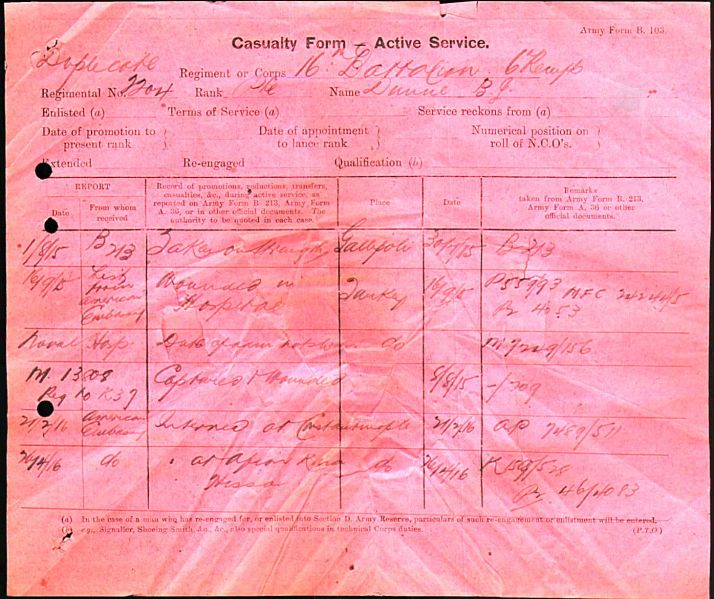 Army Form B. 103.
Casualty Form – Active Service.
Duplicate
Regiment or Corps 16th Battalion
Regimental No. 2204 Rank Pte Name Dunne B J
Enlisted (a) Terms of Service (a) Service reckons from (a)
Date of promotion to present rank Date of appointment to lance rank Numerical position on roll of N.C.O's.
Extended Re-engaged Qualification (b)
REPORT
Date From whom received
Record of promotions, reductions, transfers, casualties, &c., during active service, as repeated on Army Form B. 213, Army Form A. 36, or in other official documents. The authority to be quoted in each case.
Place
Date
Remarks taken from Army Form B. 213, Army Form A. 36 or other official documents.
1/8/15 B 213 Taken on Strength Gallipoli 30/7/15 B 213
List from American Embassy Wounded in Hospital Turkey
Naval Hosp do
M. 13208 Captured & Wounded 8/8/15 -/709
Reg to K37
21/2/16 American Embassy Interned at Constantinople 21/2/16 AP 7489/511
26/4/16 do " at Afion Kara Hissar do 26/4/16
(a) In the case of a man who has re-engaged for, or enlisted into Section D. Army Reserve, particulars of such re-engagement or enlistment will be entered.
(b) e.g., Signaller, Shoeing Smith, &c., &c., also special qualifications in technical Corps duties. (P.T.O.)